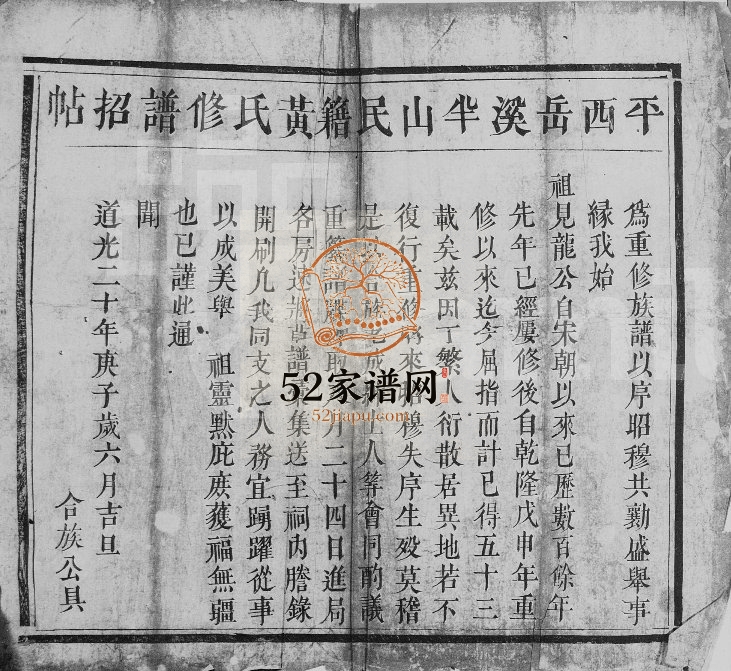 平西岳溪半山民籍黃氏修譜招帖
爲重修族譜以序昭穆共勷盛舉事
緣我始
祖見龍公自宋朝以來已歷數百餘年
先年已經屢修後自乾隆戊申年重
修以來迄今屈指而計已得五十三
載矣茲因丁繁人衍散居異地若不
復行重修將來昭穆失序生殁莫稽
是合族老成人等會同酌議
重月二十四日進局
各房速將舊譜彙集送至祠內謄錄
開刷凡我同支之人務宜踴躍從事
以成美舉 祖靈默庇庶獲福無疆
也已謹此通
聞
道光二十年庚子歲六月吉旦
合族公具
52家谱网
52jiapu.com